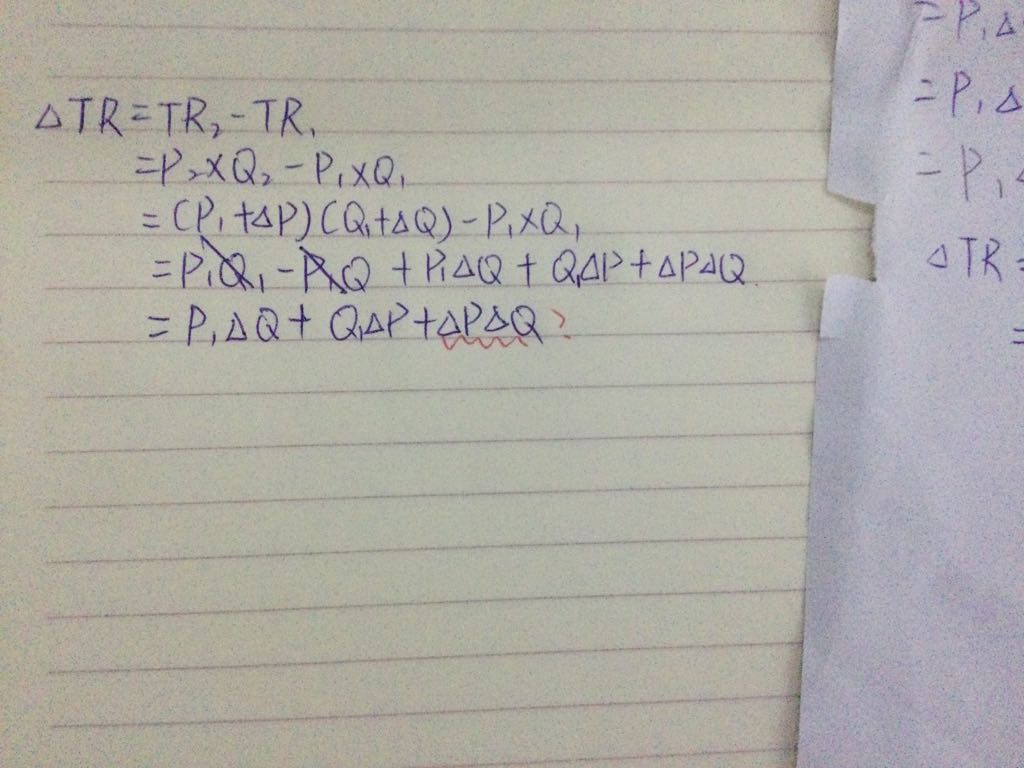 △TR=TR₂-TR₁
=P₂×Q₂-P₁×Q₁
=(P₁+△P)(Q₁+△Q)-P₁×Q₁
=P₁Q₁-P₁Q+P₁△Q+Q₁△P+△P△Q
=P₁△Q+Q₁△P+△P△Q?
=P₁△
=P₁△
=P₁△
△TR=
=